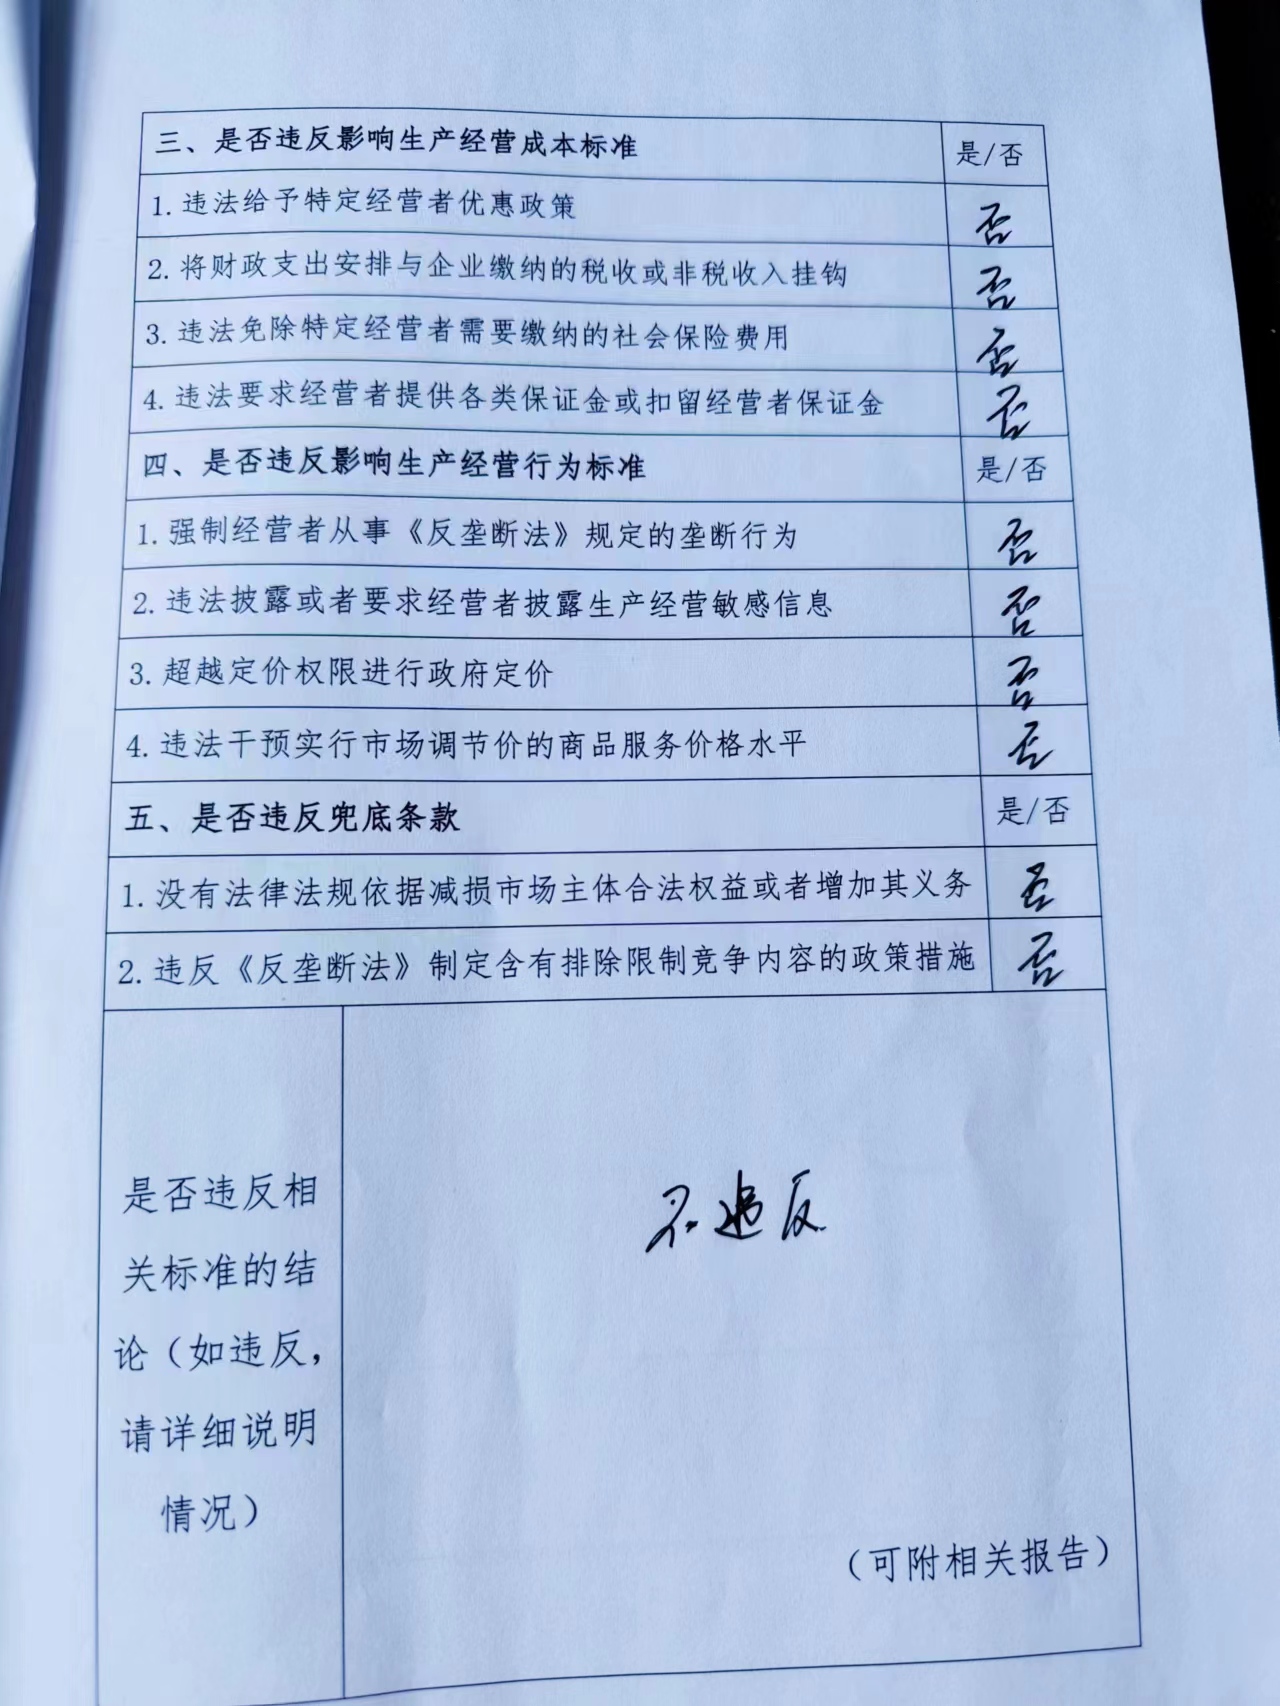 三、是否违反影响生产经营成本标准 是/否
1.违法给予特定经营者优惠政策 否
2.将财政支出安排与企业缴纳的税收或非税收入挂钩 否
3.违法免除特定经营者需要缴纳的社会保险费用 否
4.违法要求经营者提供各类保证金或扣留经营者保证金 否
四、是否违反影响生产经营行为标准 是/否
1.强制经营者从事《反垄断法》规定的垄断行为 否
2.违法披露或者要求经营者披露生产经营敏感信息 否
3.超越定价权限进行政府定价 否
4.违法干预实行市场调节价的商品服务价格水平 否
五、是否违反兜底条款 是/否
1.没有法律法规依据减损市场主体合法权益或者增加其义务 否
2.违反《反垄断法》制定含有排除限制竞争内容的政策措施 否
是否违反相
关标准的结
论（如违反，
请详细说明
情况）
不违反
（可附相关报告）